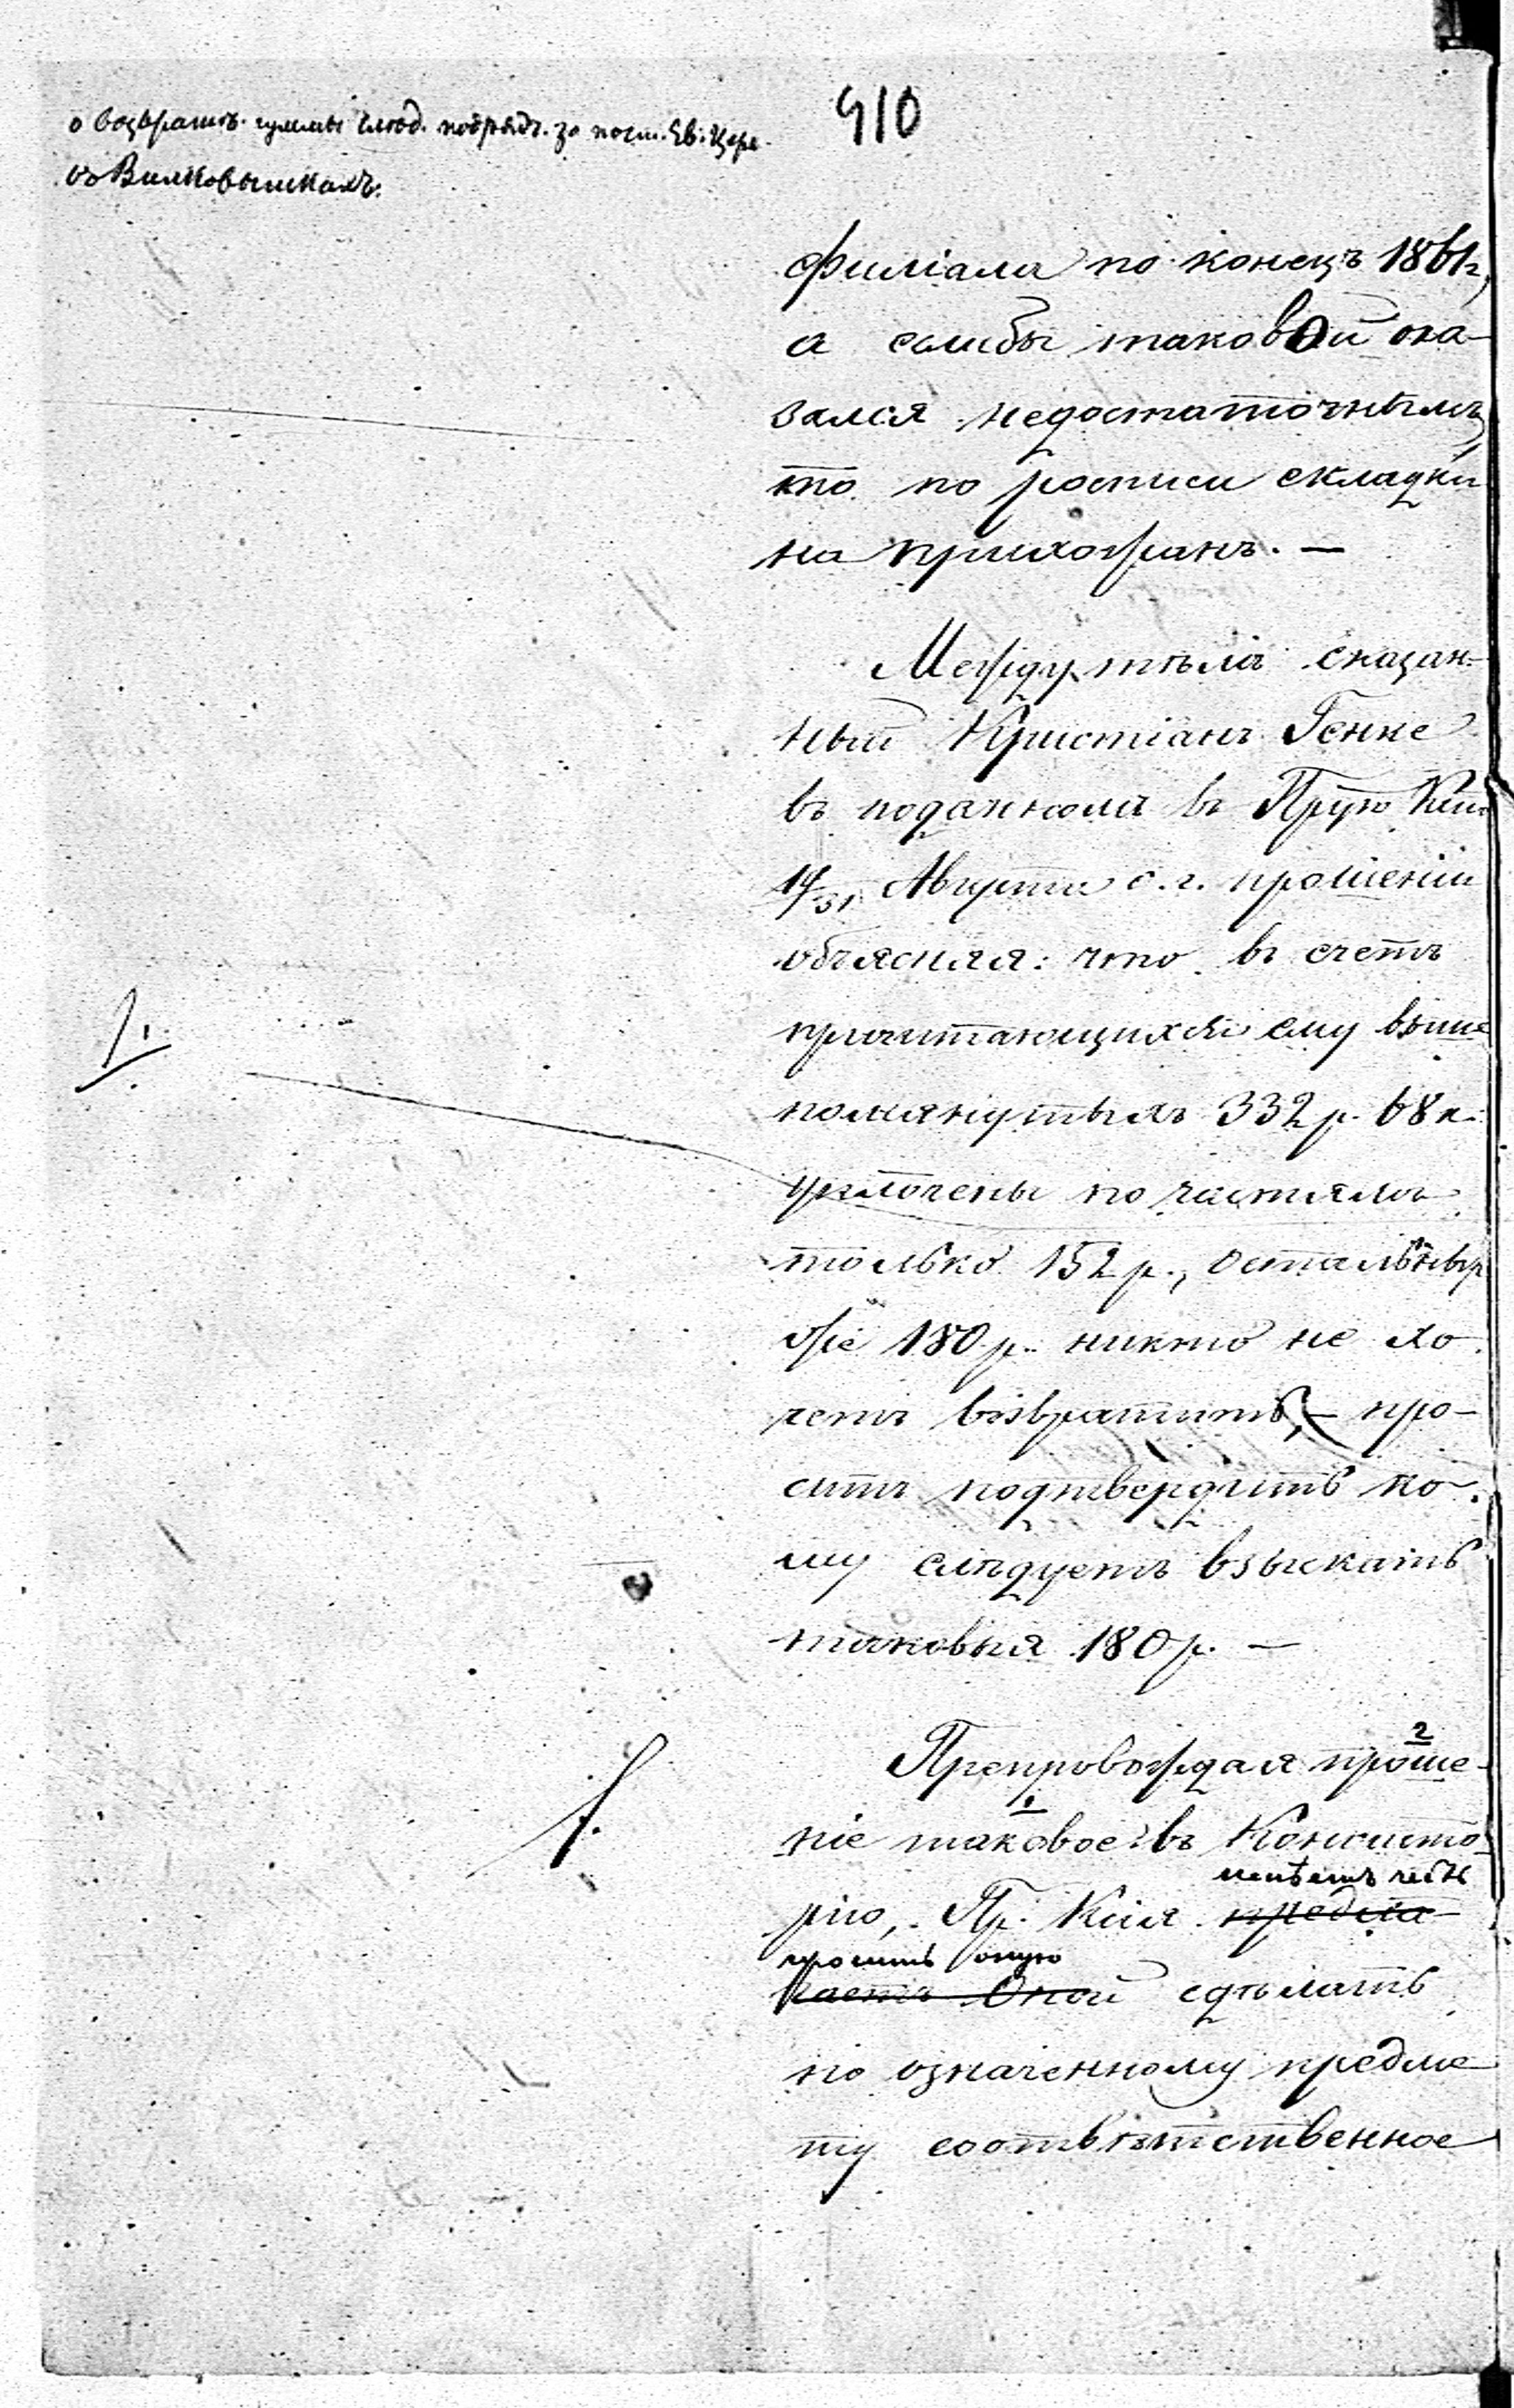 410
о возвратѣ суммы слѣд. подряд. за пост. Ев. Церк.
въ Вилковышкахъ.
филіала по конецъ 1861 г,
а еслибы таковой ока-
зался недостаточнымъ,
то по росписи складки
на прихожанъ. —
Между тѣмъ сказан-
ный Кристіанъ Генке
въ поданномъ въ Прую Ксію
Августа с. г. прошеніи
объясняя: что въ счетъ
причитающихся ему выше
помянутыхъ 332 р. 68 к.
уплочены по частямъ
только 152 р., остальныя
же 180 р. никто не хо-
четъ возвратить, — про-
ситъ подтвердить ко-
му слѣдуетъ взыскать
таковыя 180 р. —
2
Препровождая проше-
1
ніе таковое въ Консисто-
имѣетъ честь
рію, Пр. Ксія предла-
просить оную
гаетъ Оной сдѣлать
по означенному предме
ту соотвѣтственное